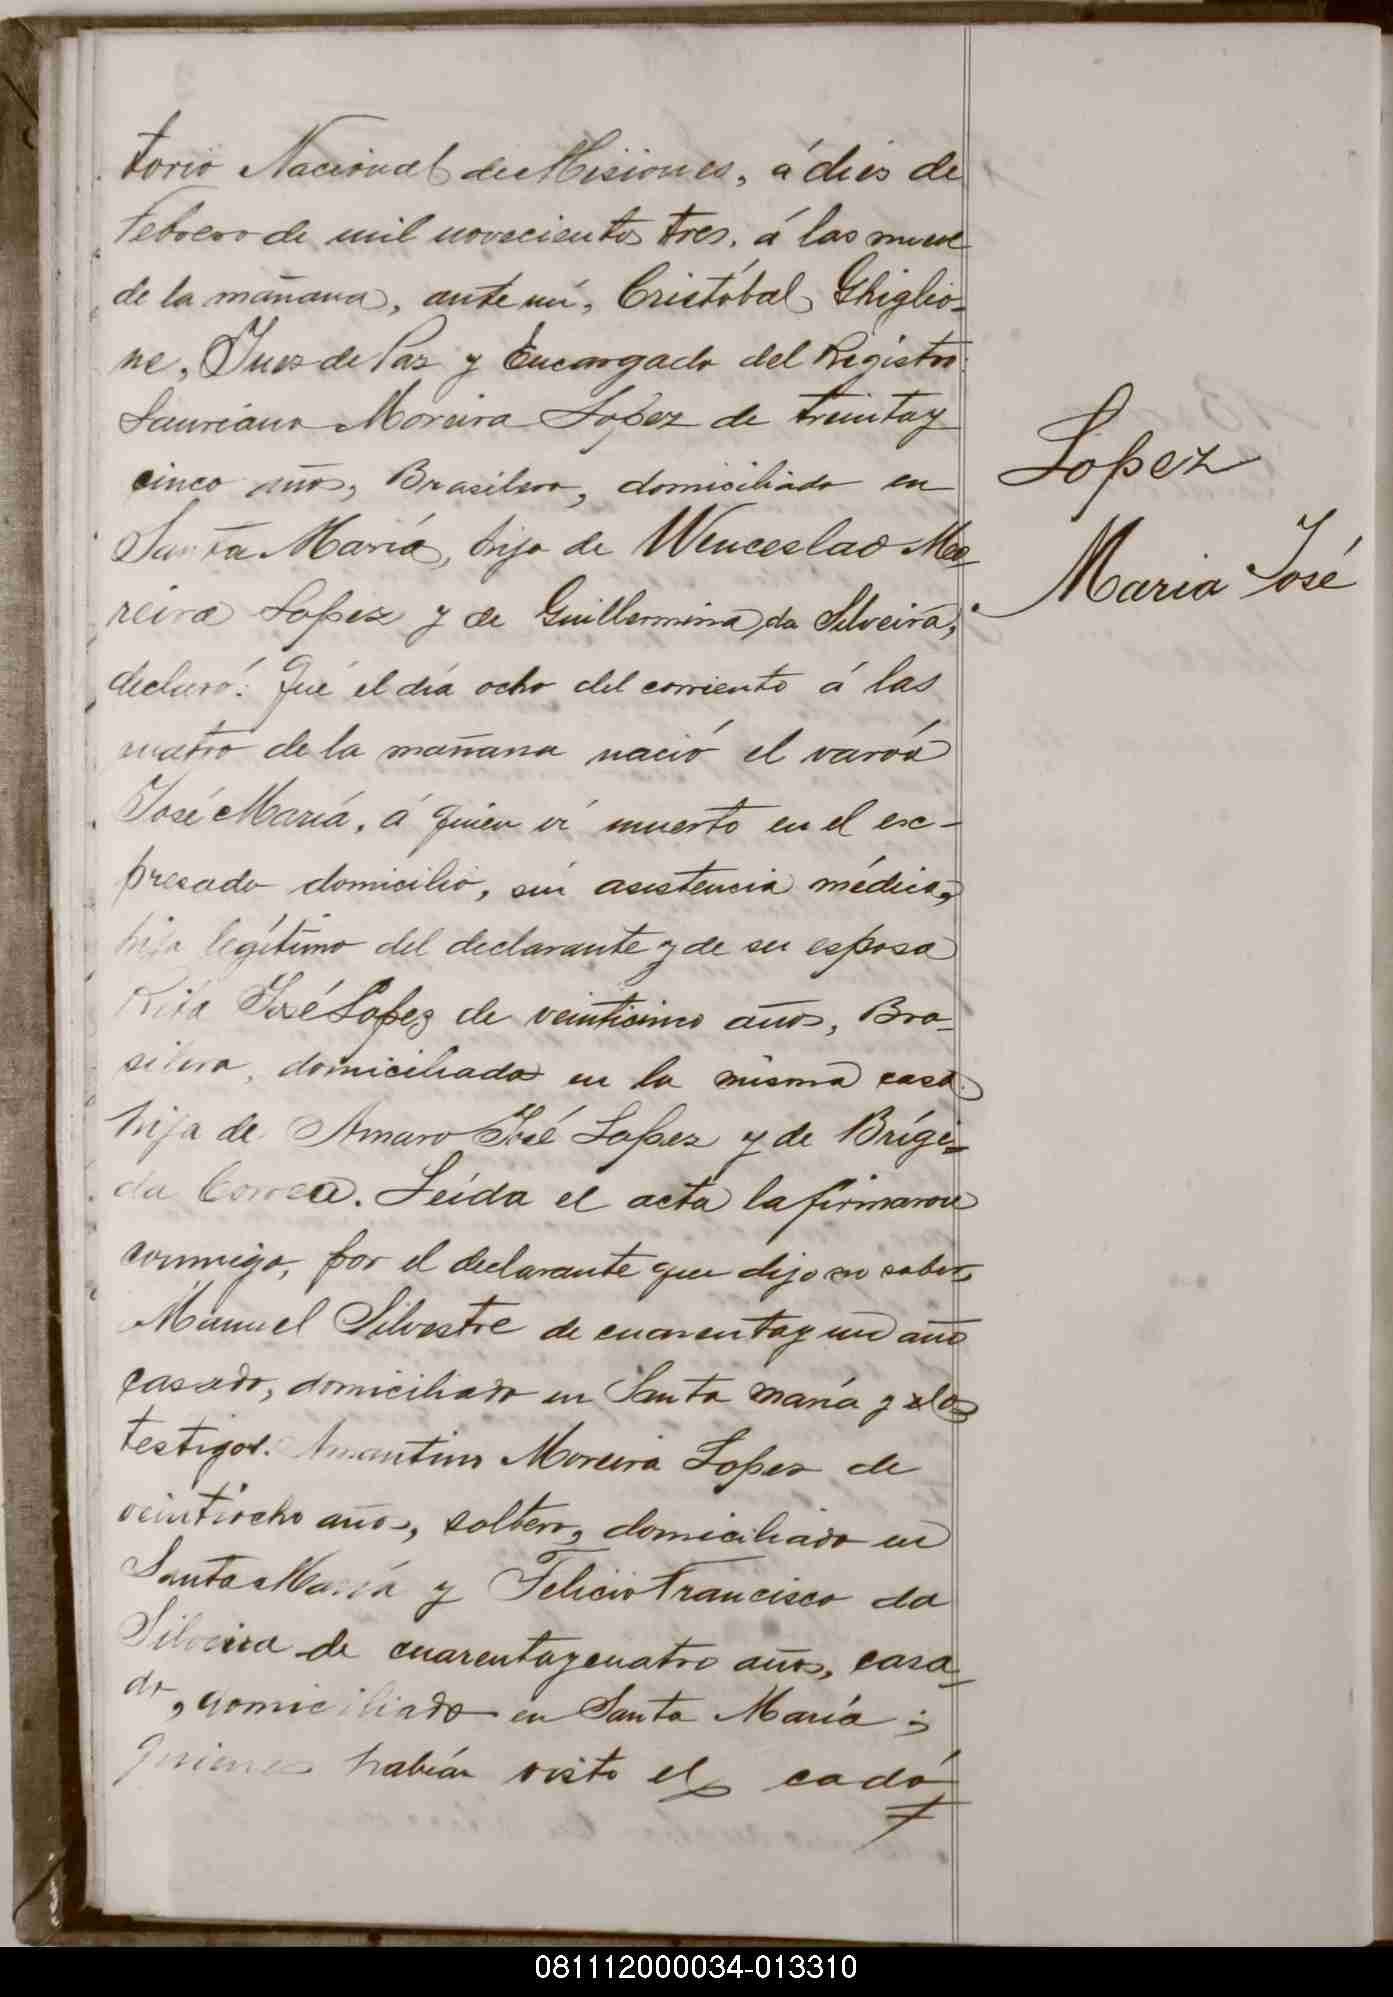 torio Nacional de Misiones, á dies de
Febrero de mil novecientos tres, á las nueve
de la mañana, ante mí, Cristóbal Ghiglio-
ne, Jues de Pas y Encargado del Registro
Laureano Moreira Lopez de treinta y
cinco años, Brasilero, domiciliado en
Santa María, hijo de Wenceslao Mo-
reira Lopez y de Guillermina da Silveira,
declaró: Que el día ocho del corriente á las
cuatro de la mañana nació el varón
José María, á quien ví muerto en el ex-
presado domicilio, sin asistencia médica,
hijo legítimo del declarante y de su esposa
Rita José Lopez de veinticinco años, Bra-
silera, domiciliada en la misma casa
hija de Amaro José Lopez y de Brígi-
da Correa. Leída el acta la firmaron
conmigo, por el declarante que dijo no saber,
Manuel Silvestre de cuarenta y un año
casado, domiciliado en Santa María y los
testigos. Amantino Moreira Lopez de
veintiocho años, soltero, domiciliado en
Santa María y Felicio Francisco da
Silveira de cuarenta y cuatro años, casa-
do, domiciliado en Santa María;
quienes habían visto el cadá-
Lopez
Maria José
081112000034-013310